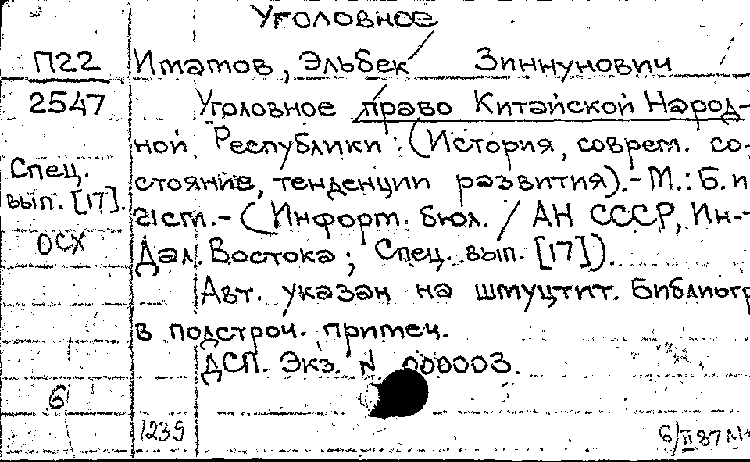 Уголовное
П22
2547
Спец.
вып. [17].
ОСХ
6
Иматов, Эльбек Зиннунович
Уголовное право Китайской Народ-
ной Республики: (История, соврем. со-
стояние, тенденции развития).- М.: Б.и
- (Информ. бюл. / АН СССР, Ин-
Дал. Востока; Спец. вып. [17]).
Авт. указан на шмуцтит. Библиогр
в подстроч. примеч.
ДСП. Экз. N 000003.
1239
6/II 87